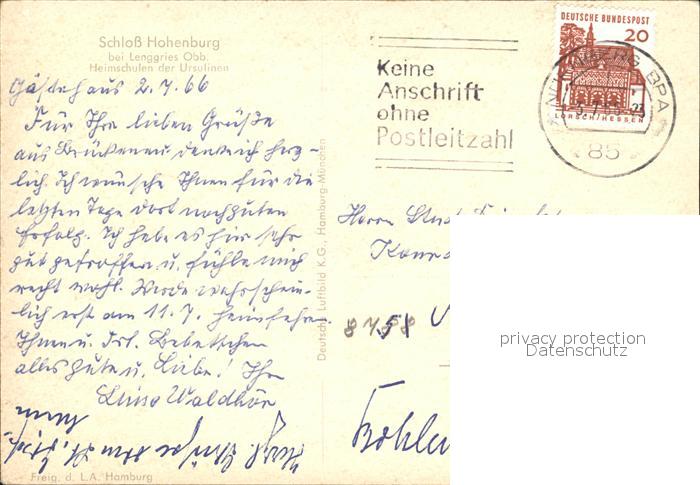 Schloß Hohenburg
bei Lenggries Obb.
Heimschulen der Ursulinen
Gästehaus 2.7.66
Für Ihre lieben Grüße
aus Brückenau danke ich herz-
lich. Ich wünsche Ihnen für die
letzten Tage dort noch guten
Erfolg. Ich habe es hier sehr
gut getroffen u. fühle mich
recht wohl. Werde wahrschein-
lich erst am 11.7. heimfahren.
Ihnen u. Frl.
alles Gute u. Liebe! Ihre
Waldhör
Freig. d. L.A. Hamburg
Deutsche Luftbild K.G., Hamburg-München
Keine
Anschrift
ohne
Postleitzahl
DEUTSCHE BUNDESPOST
20
LORSCH/HESSEN
NÜRNBERG BPA
85
Herrn
privacy protection
Datenschutz